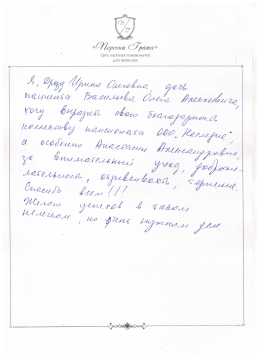 «Персона Грата»
сеть частных пансионатов
для пожилых
Я, Ирина Олеговна, дочь
Васильева Олега Алексеевича,
хочу выразить свою благодарность
коллективу пансионата ООО
а особенно Анастасии Александровне,
за внимательный уход, доброже-
лательность, отзывчивость, терпение.
Спасибо всем!!!
Желаю успехов в таком
нелегком, но очень нужном деле.